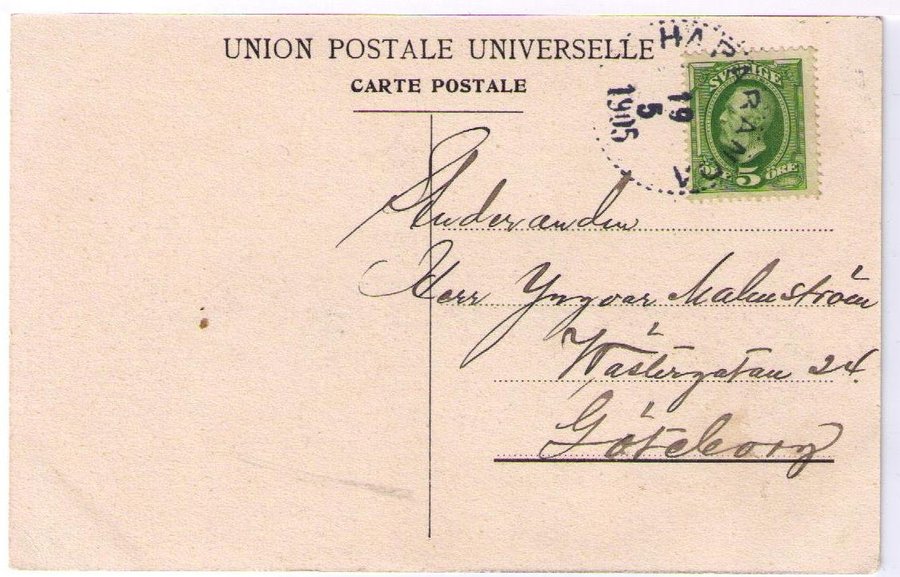 UNION POSTALE UNIVERSELLE
CARTE POSTALE
HAPARANDA
19
5
1905
SVERIGE
5 ÖRE
Studeranden
Herr Yngvar Malmström
Wästergatan 24.
Göteborg